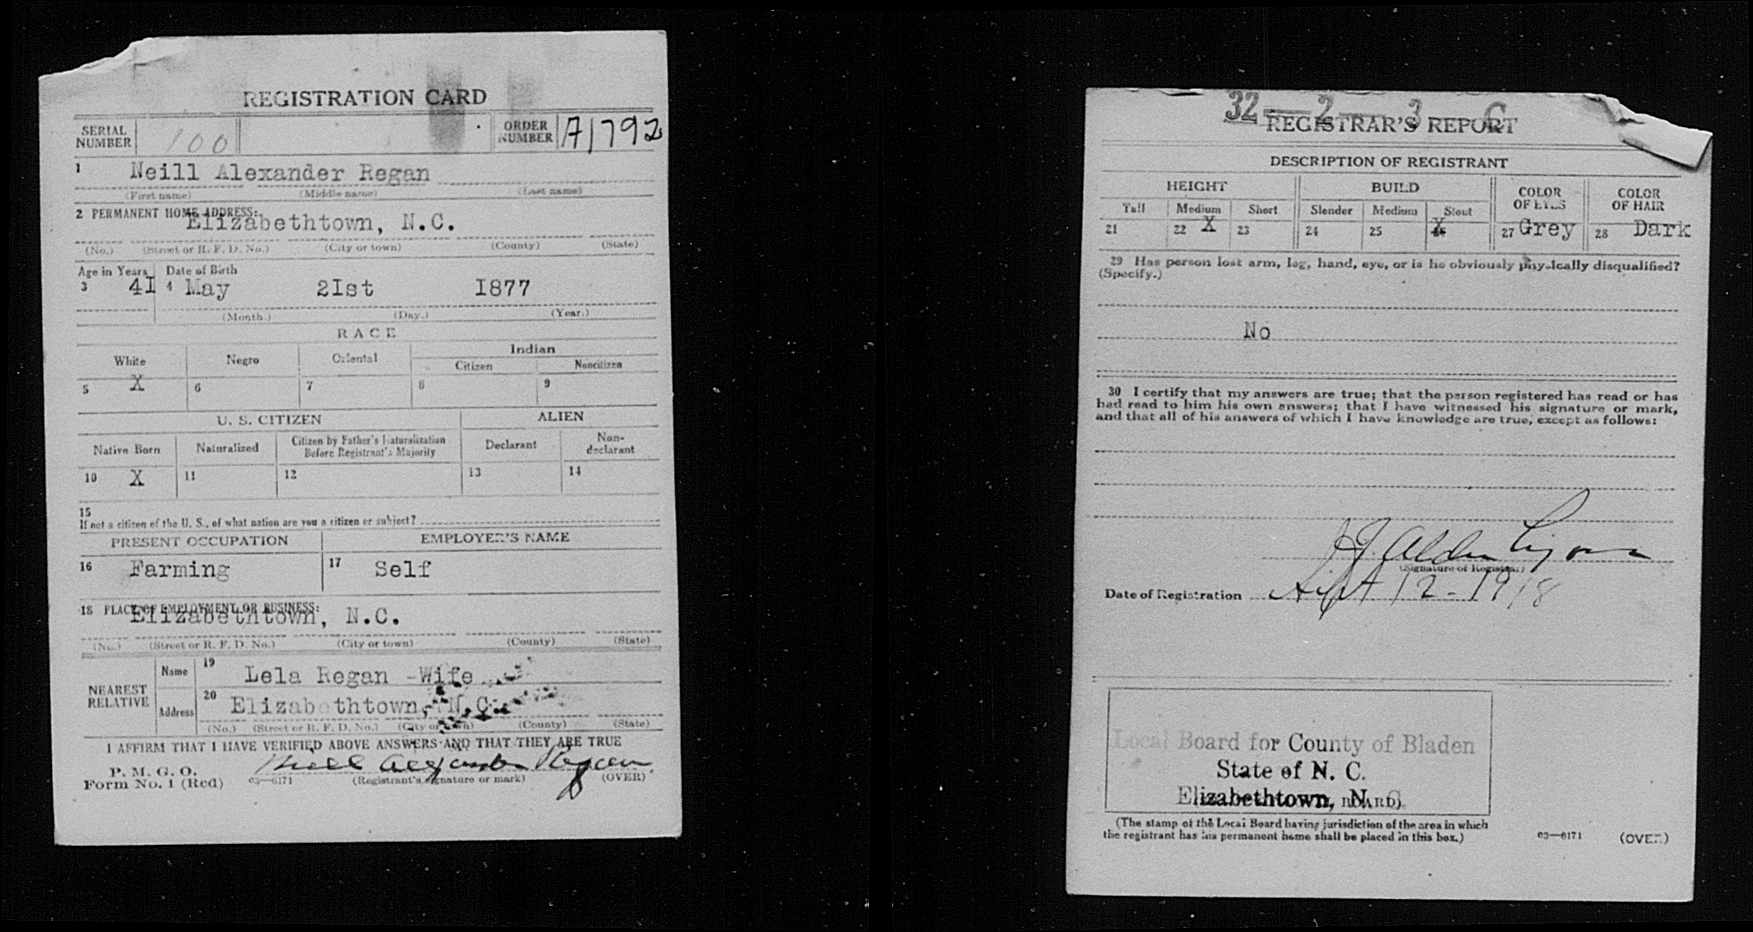 REGISTRATION CARD
SERIAL NUMBER 100 ORDER NUMBER A1792
1 Neill Alexander Regan
(First name) (Middle name) (Last name)
2 PERMANENT HOME ADDRESS:
Elizabethtown, N.C.
(No.) (Street or R. F. D. No.) (City or town) (County) (State)
Age in Years Date of Birth
3 4I 4 May 2Ist I877
(Month.) (Day.) (Year.)
RACE
White Negro Oriental Indian
Citizen Noncitizen
5 X 6 7 8 9
U. S. CITIZEN ALIEN
Native Born Naturalized Citizen by Father's Naturalization Before Registrant's Majority Declarant Non-declarant
10 X 11 12 13 14
15
If not a citizen of the U. S., of what nation are you a citizen or subject?
PRESENT OCCUPATION EMPLOYER'S NAME
16 Farming 17 Self
18 PLACE OF EMPLOYMENT OR BUSINESS:
Elizabethtown, N.C.
(No.) (Street or R. F. D. No.) (City or town) (County) (State)
NEAREST RELATIVE Name 19 Lela Regan -Wife
Address 20 Elizabethtown, N.C.
(No.) (Street or R. F. D. No.) (City or town) (County) (State)
I AFFIRM THAT I HAVE VERIFIED ABOVE ANSWERS AND THAT THEY ARE TRUE
P. M. G. O.
Form No. 1 (Red) 03—6171 Neill Alexander Regan
(Registrant's signature or mark) (OVER)
32—2—3 C
REGISTRAR'S REPORT
DESCRIPTION OF REGISTRANT
HEIGHT BUILD COLOR OF EYES COLOR OF HAIR
Tall Medium Short Slender Medium Stout
21 22 X 23 24 25 26 X 27 Grey 28 Dark
29 Has person lost arm, leg, hand, eye, or is he obviously physically disqualified?
(Specify.)
No
30 I certify that my answers are true; that the person registered has read or has
had read to him his own answers; that I have witnessed his signature or mark,
and that all of his answers of which I have knowledge are true, except as follows:
(Signature of Registrar)
Date of Registration Sept 12-1918
Local Board for County of Bladen
State of N. C.
Elizabethtown, N. C.
BOARD)
(The stamp of the Local Board having jurisdiction of the area in which
the registrant has his permanent home shall be placed in this box.)
03—6171 (OVER)